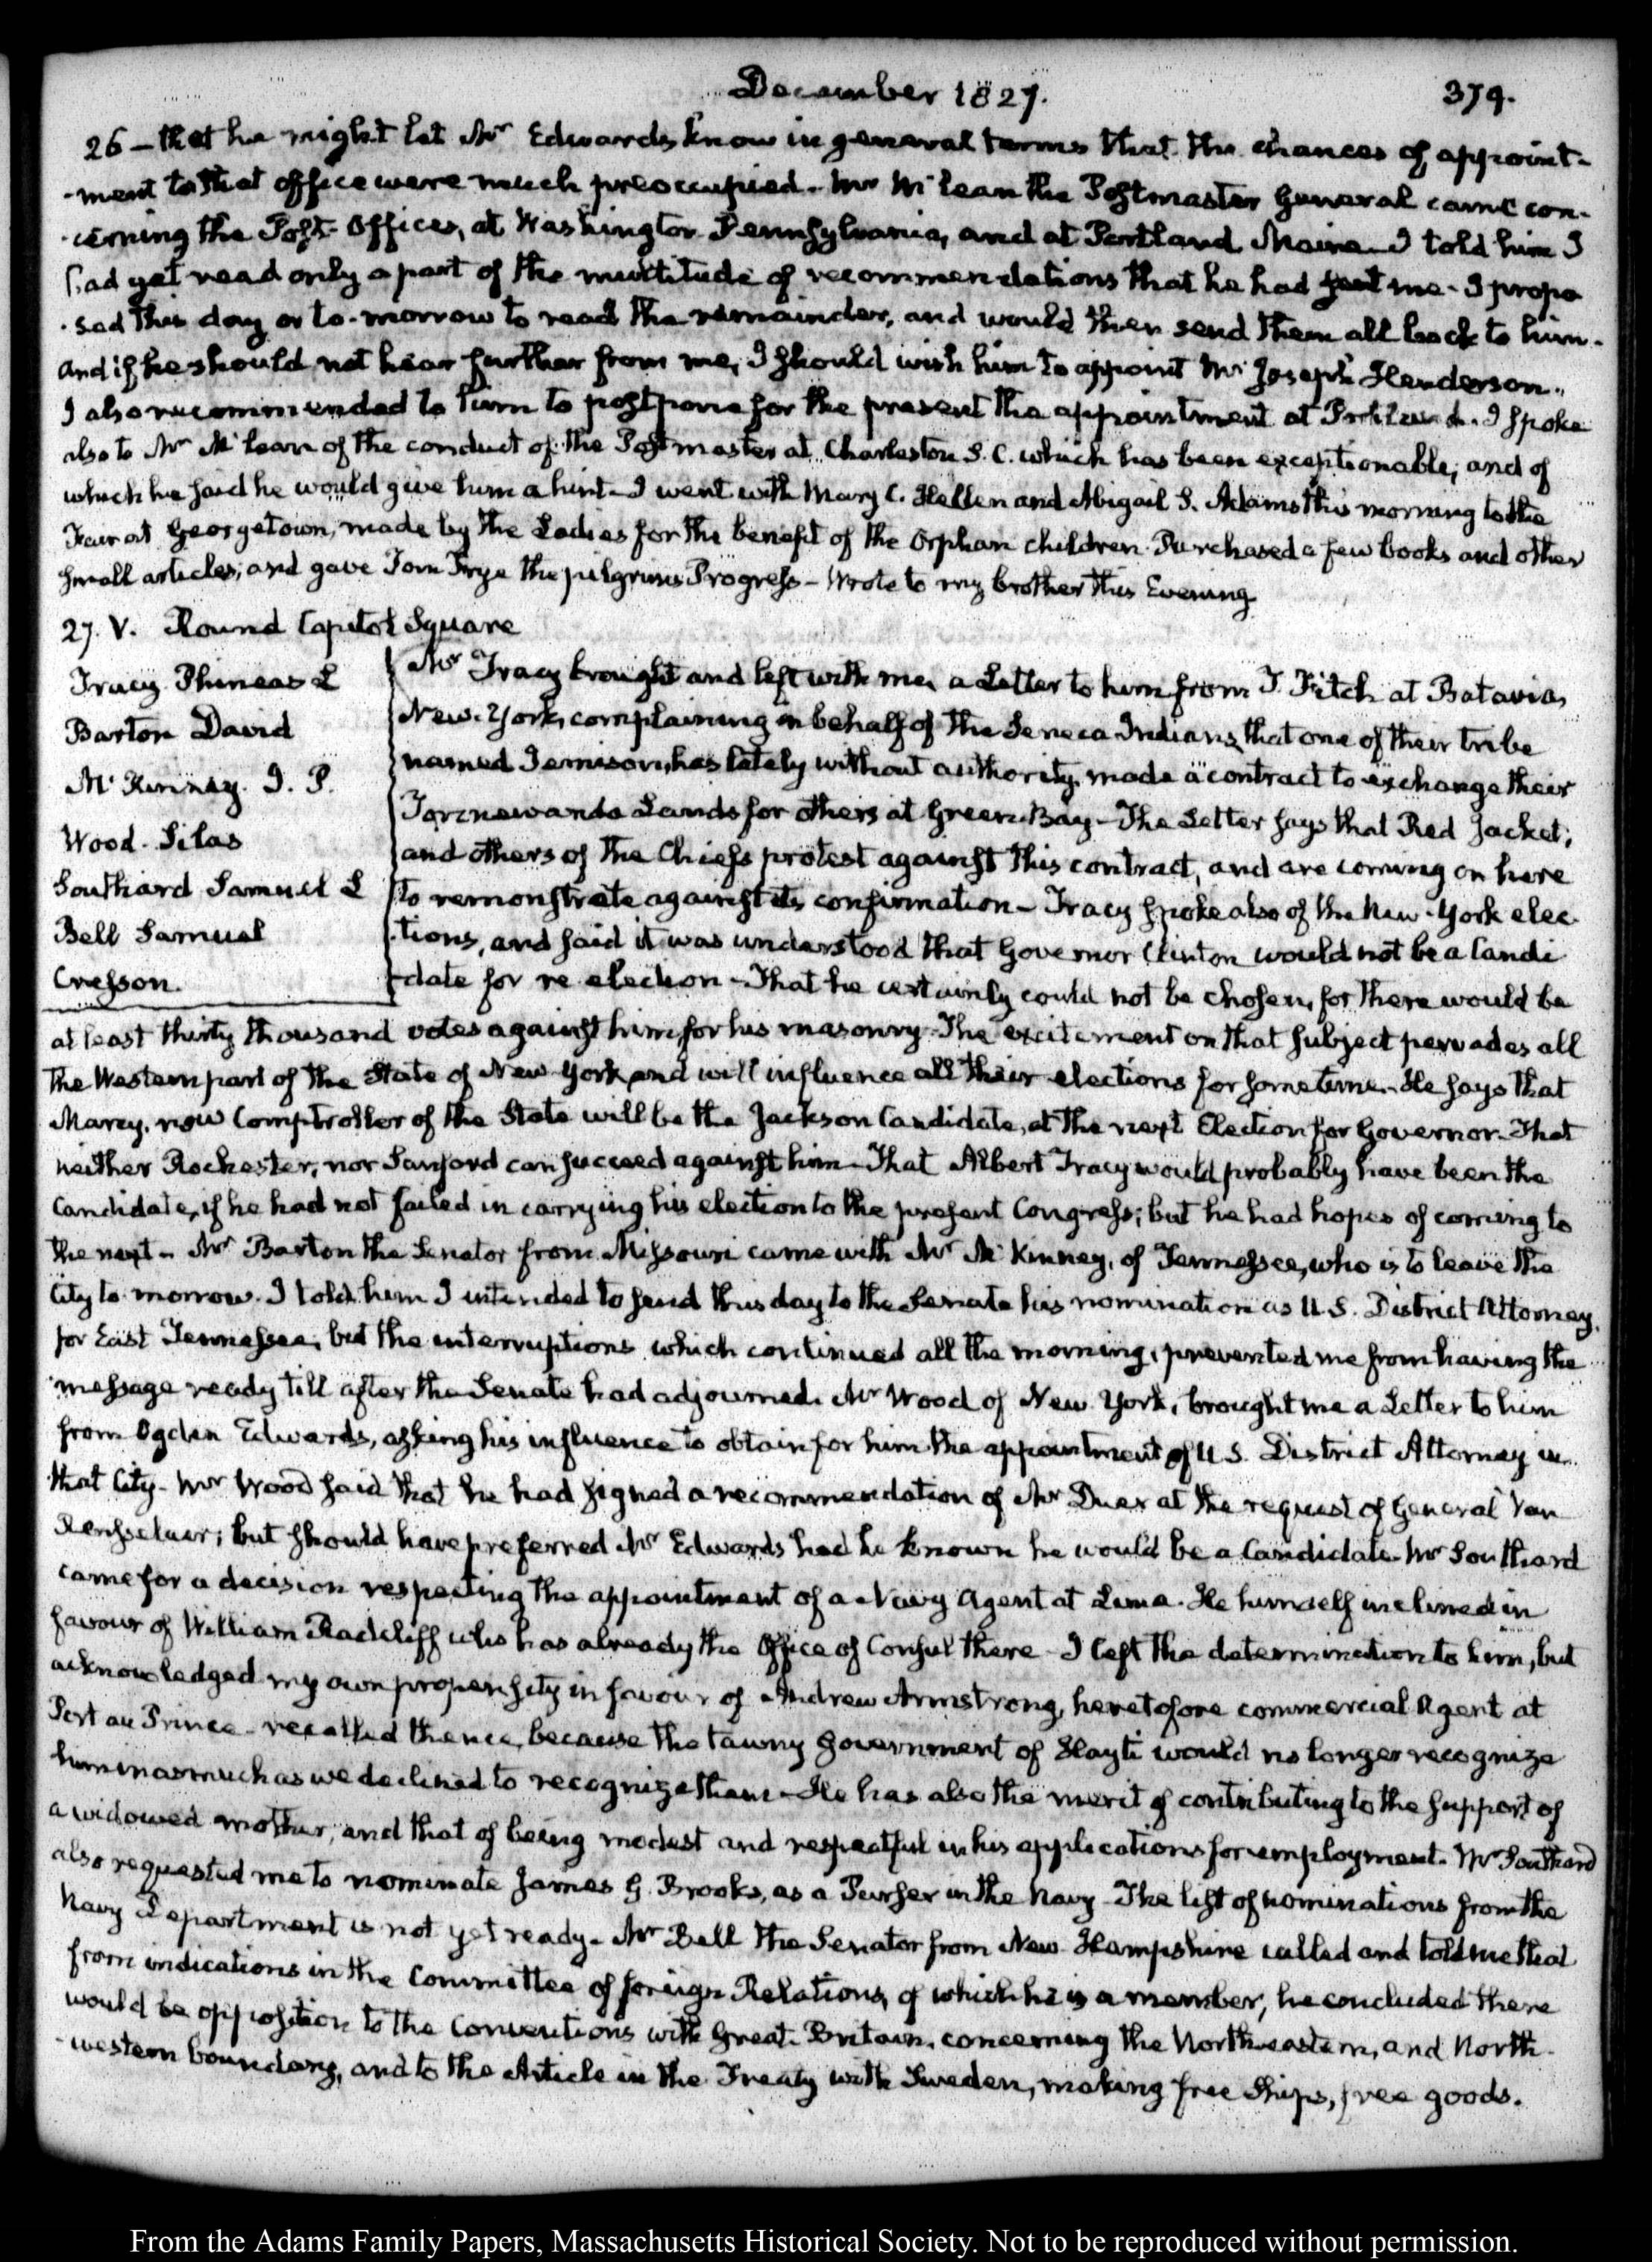 December 1827.
379.
26 – that he might let Mr Edwards know in general terms that the chances of appoint-
-ment to that office were much preoccupied. Mr McLean the Postmaster General came con-
-cerning the Post-Offices, at Washington Pennsylvania, and at Portland Maine – I told him I
had yet read only a part of the multitude of recommendations that he had sent me – I propo
-sed this day or to-morrow to read the remainder, and would then send them all back to him.
and if he should not hear further from me, I should wish him to appoint Mr Joseph Henderson.
I also recommended to him to postpone for the present the appointment at Portland. I spoke
also to Mr McLean of the conduct of the Postmaster at Charleston S. C. which has been exceptionable; and of
which he said he would give him a hint – I went with Mary C. Hellen and Abigail S. Adams this morning to the
Fair at Georgetown, made by the Ladies for the benefit of the Orphan children. Purchased a few books and other
small articles; and gave Tom Frye the pilgrims Progress – Wrote to my brother this Evening.
27. V. Round Capitol Square
Tracy Phineas L
Barton David
McKinney. J. P.
Wood. Silas
Southard Samuel L
Bell Samuel
Cresson.
Mr Tracy brought and left with me, a Letter to him from T. Fitch at Batavia,
New-York, complaining in behalf of the Seneca Indians, that one of their tribe
named Jemison, has lately without authority, made a contract to exchange their
Tonnewanda Lands for others at Green-Bay – The Letter says that Red Jacket;
and others of the Chiefs protest against this contract, and are coming on here
to remonstrate against its confirmation – Tracy spoke also of the New-York elec-
-tions, and said it was understood that Governor Clinton would not be a Candi
-date for re election – That he certainly could not be chosen, for there would be
at least thirty thousand votes against him for his masonry – The excitement on that subject pervades all
the Western part of the State of New York and will influence all their elections for some time. He says that
Marcy, now Comptroller of the State will be the Jackson Candidate, at the next Election for Governor. That
neither Rochester, nor Sanford can succeed against him – That Albert Tracy would probably have been the
Candidate, if he had not failed in carrying his election to the present Congress; but he had hopes of coming to
the next – Mr Barton the Senator from Missouri came with Mr McKinney, of Tennessee, who is to leave the
City to morrow. I told him I intended to send this day to the Senate his nomination as U. S. District Attorney,
for East Tennessee, but the interruptions which continued all the morning, prevented me from having the
message ready till after the Senate had adjourned. Mr Wood of New York, brought me a Letter to him
from Ogden Edwards, asking his influence to obtain for him the appointment of U S. District Attorney in
that City – Mr Wood said that he had signed a recommendation of Mr Duer at the request of General Van
Rensselaer; but should have preferred Mr Edwards had he known he would be a Candidate – Mr Southard
came for a decision respecting the appointment of a Navy Agent at Lima. He himself inclined in
favour of William Radcliff who has already the Office of Consul there – I left the determination to him, but
acknowledged my own propensity in favour of Andrew Armstrong, heretofore commercial Agent at
Port au Prince – recalled thence, because the tawny Government of Hayti would no longer recognize
him inasmuch as we declined to recognize them – He has also the merit of contributing to the support of
a widowed mother, and that of being modest and respectful in his applications for employment. Mr Southard
also requested me to nominate James G. Brooks, as a Purser in the Navy – The list of nominations from the
Navy Department is not yet ready – Mr Bell the Senator from New-Hampshire called and told me that
from indications in the Committee of foreign Relations, of which he is a member, he concluded there
would be opposition to the Conventions with Great-Britain, concerning the North-eastern, and North-
-western boundary, and to the Article in the Treaty with Sweden, making free Ships, free goods.
From the Adams Family Papers, Massachusetts Historical Society. Not to be reproduced without permission.